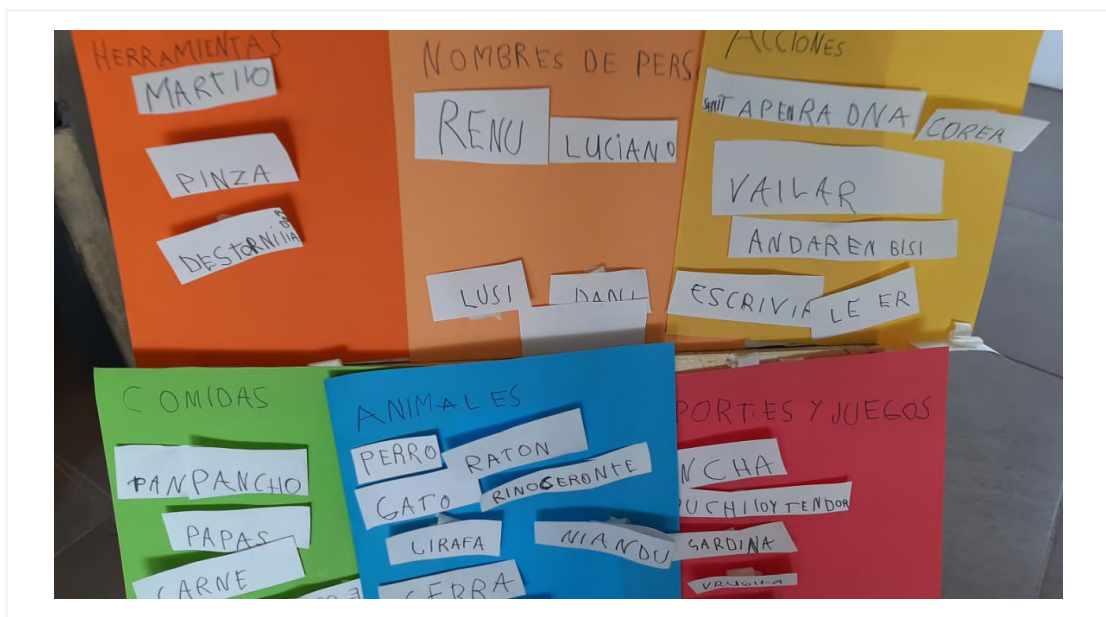 HERRAMIENTAS
MARTILLO
PINZA
DESTORNILLA
NOMBRES DE PERS
RENU
LUCIANO
LUSI
DANI
ACCIONES
APENRA DNA
CORER
VAILAR
ANDAR EN BISI
ESCRIVIR
LE ER
COMIDAS
PANPANCHO
PAPAS
CARNE
ANIMALES
PERRO
RATON
GATO
RINOSERONTE
GIRAFA
NIANDU
CERRA
PORTES Y JUEGOS
NCHA
UCHILLOY TENDOR
SARDINA